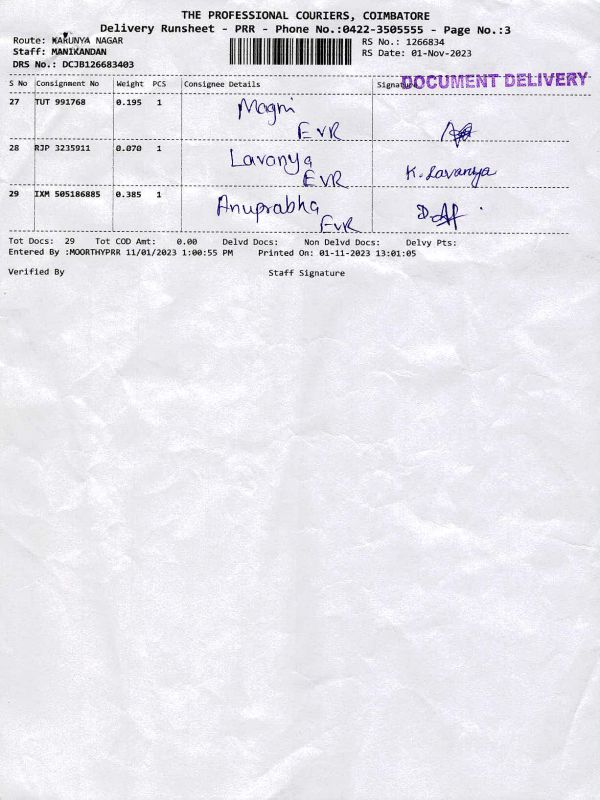 THE PROFESSIONAL COURIERS, COIMBATORE
Delivery Runsheet - PRR - Phone No.:0422-3505555 - Page No.:3
Route: KARUNYA NAGAR
RS No.: 1266834
Staff: MANIKANDAN
RS Date: 01-Nov-2023
DRS No.: DCJB126683403
DOCUMENT DELIVERY
S No Consignment No Weight PCS Consignee Details Signature
27 TUT 991768 0.195 1 Magni
EVR
28 RJP 3235911 0.070 1 Lavanya
EVR K. Lavanya
29 IXM 505186885 0.385 1 Anuprabha
EVR
Tot Docs: 29 Tot COD Amt: 0.00 Delvd Docs: Non Delvd Docs: Delvy Pts:
Entered By :MOORTHYPRR 11/01/2023 1:00:55 PM Printed On: 01-11-2023 13:01:05
Verified By Staff Signature